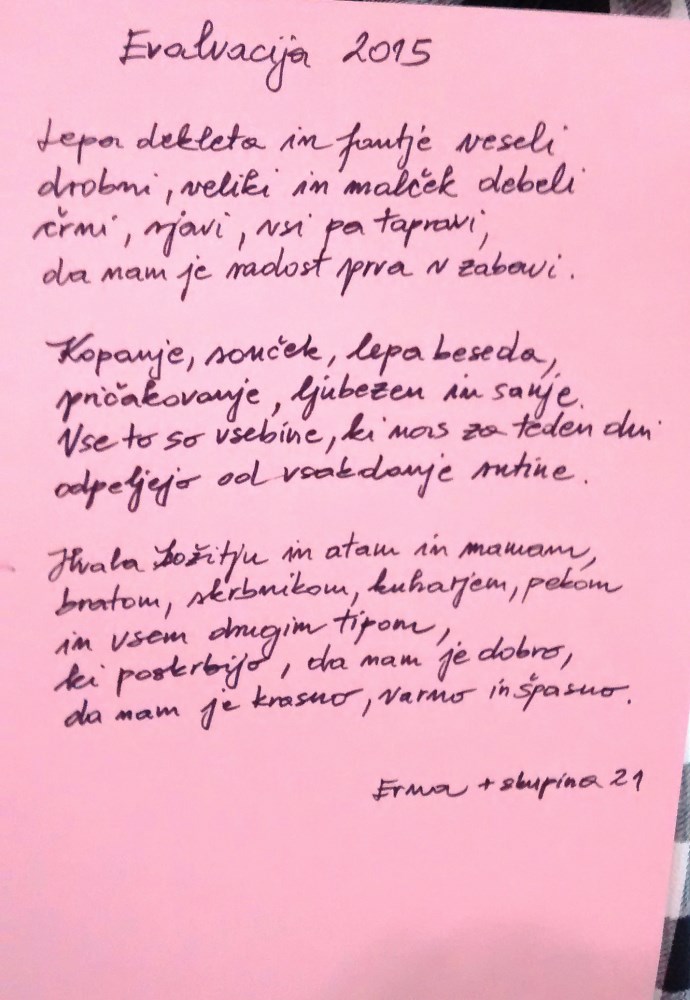 Evalvacija 2015
Lepa dekleta in fantje veseli
drobni, veliki in malček debeli
črni, rjavi, vsi pa tapravi,
da nam je radost prva v zabavi.
Kopanje, sonček, lepa beseda,
pričakovanje, ljubezen in sanje.
Vse to so vsebine, ki nas za teden dni
odpeljejo od vsakdanje rutine.
Hvala in atam in mamam,
bratom, skrbnikom, kuharjem, pekom
in vsem drugim tipom,
ki poskrbijo, da nam je dobro,
da nam je krasno, varno in špasno.
Erna + skupina 21